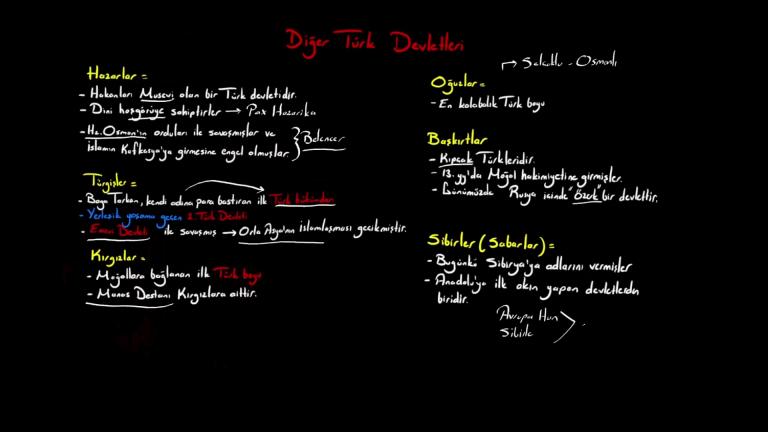 Diğer Türk Devletleri
Hazarlar =
- Hakanları Musevi olan bir Türk devletidir.
- Dini hoşgörüye sahiptirler → Pax Hazarika
- Hz. Osman'ın orduları ile savaşmışlar ve
İslamın Kafkasya'ya girmesine engel olmuşlar. } Belencer
Türgişler =
- Baga Tarkan, kendi adına para bastıran ilk Türk hükümdarı
- Yerleşik yaşama geçen 2. Türk Devleti
- Emevi Devleti ile savaşmış → Orta Asya'nın islamlaşması gecikmiştir.
Kırgızlar =
- Moğollara bağlanan ilk Türk boyu
- Manas Destanı Kırgızlara aittir.
→ Selçuklu - Osmanlı
Oğuzlar =
- En kalabalık Türk boyu
Başkırtlar
- Kıpçak Türkleridir.
- 13. yy'da Moğol hakimiyetine girmişler.
- Günümüzde Rusya içinde "özerk" bir devlettir.
Sibirler (Sabarlar) =
- Bugünkü Sibirya'ya adlarını vermişler
- Anadolu'ya ilk akın yapan devletlerden
biridir.
Avrupa Hun
Sibirle